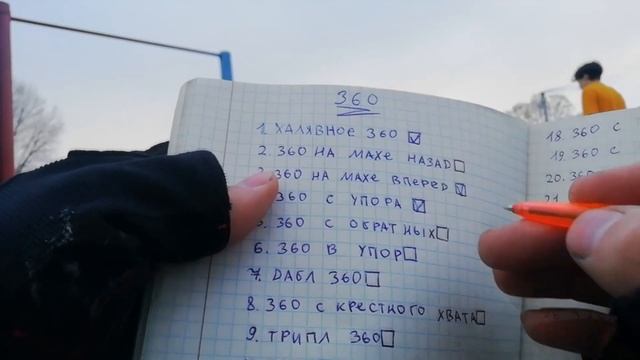 360
1. ХАЛЯВНОЕ 360 ☑
2. 360 НА МАХЕ НАЗАД ☐
360 НА МАХЕ ВПЕРЕД ☑
360 С УПОРА ☑
360 С ОБРАТНЫХ ☐
6. 360 В УПОР ☐
7. DАБЛ 360 ☐
8. 360 С КРЕСТНОГО ХВАТА ☐
9. ТРИПЛ 360 ☐
18. 360 С
19. 360 С
20. 360
21